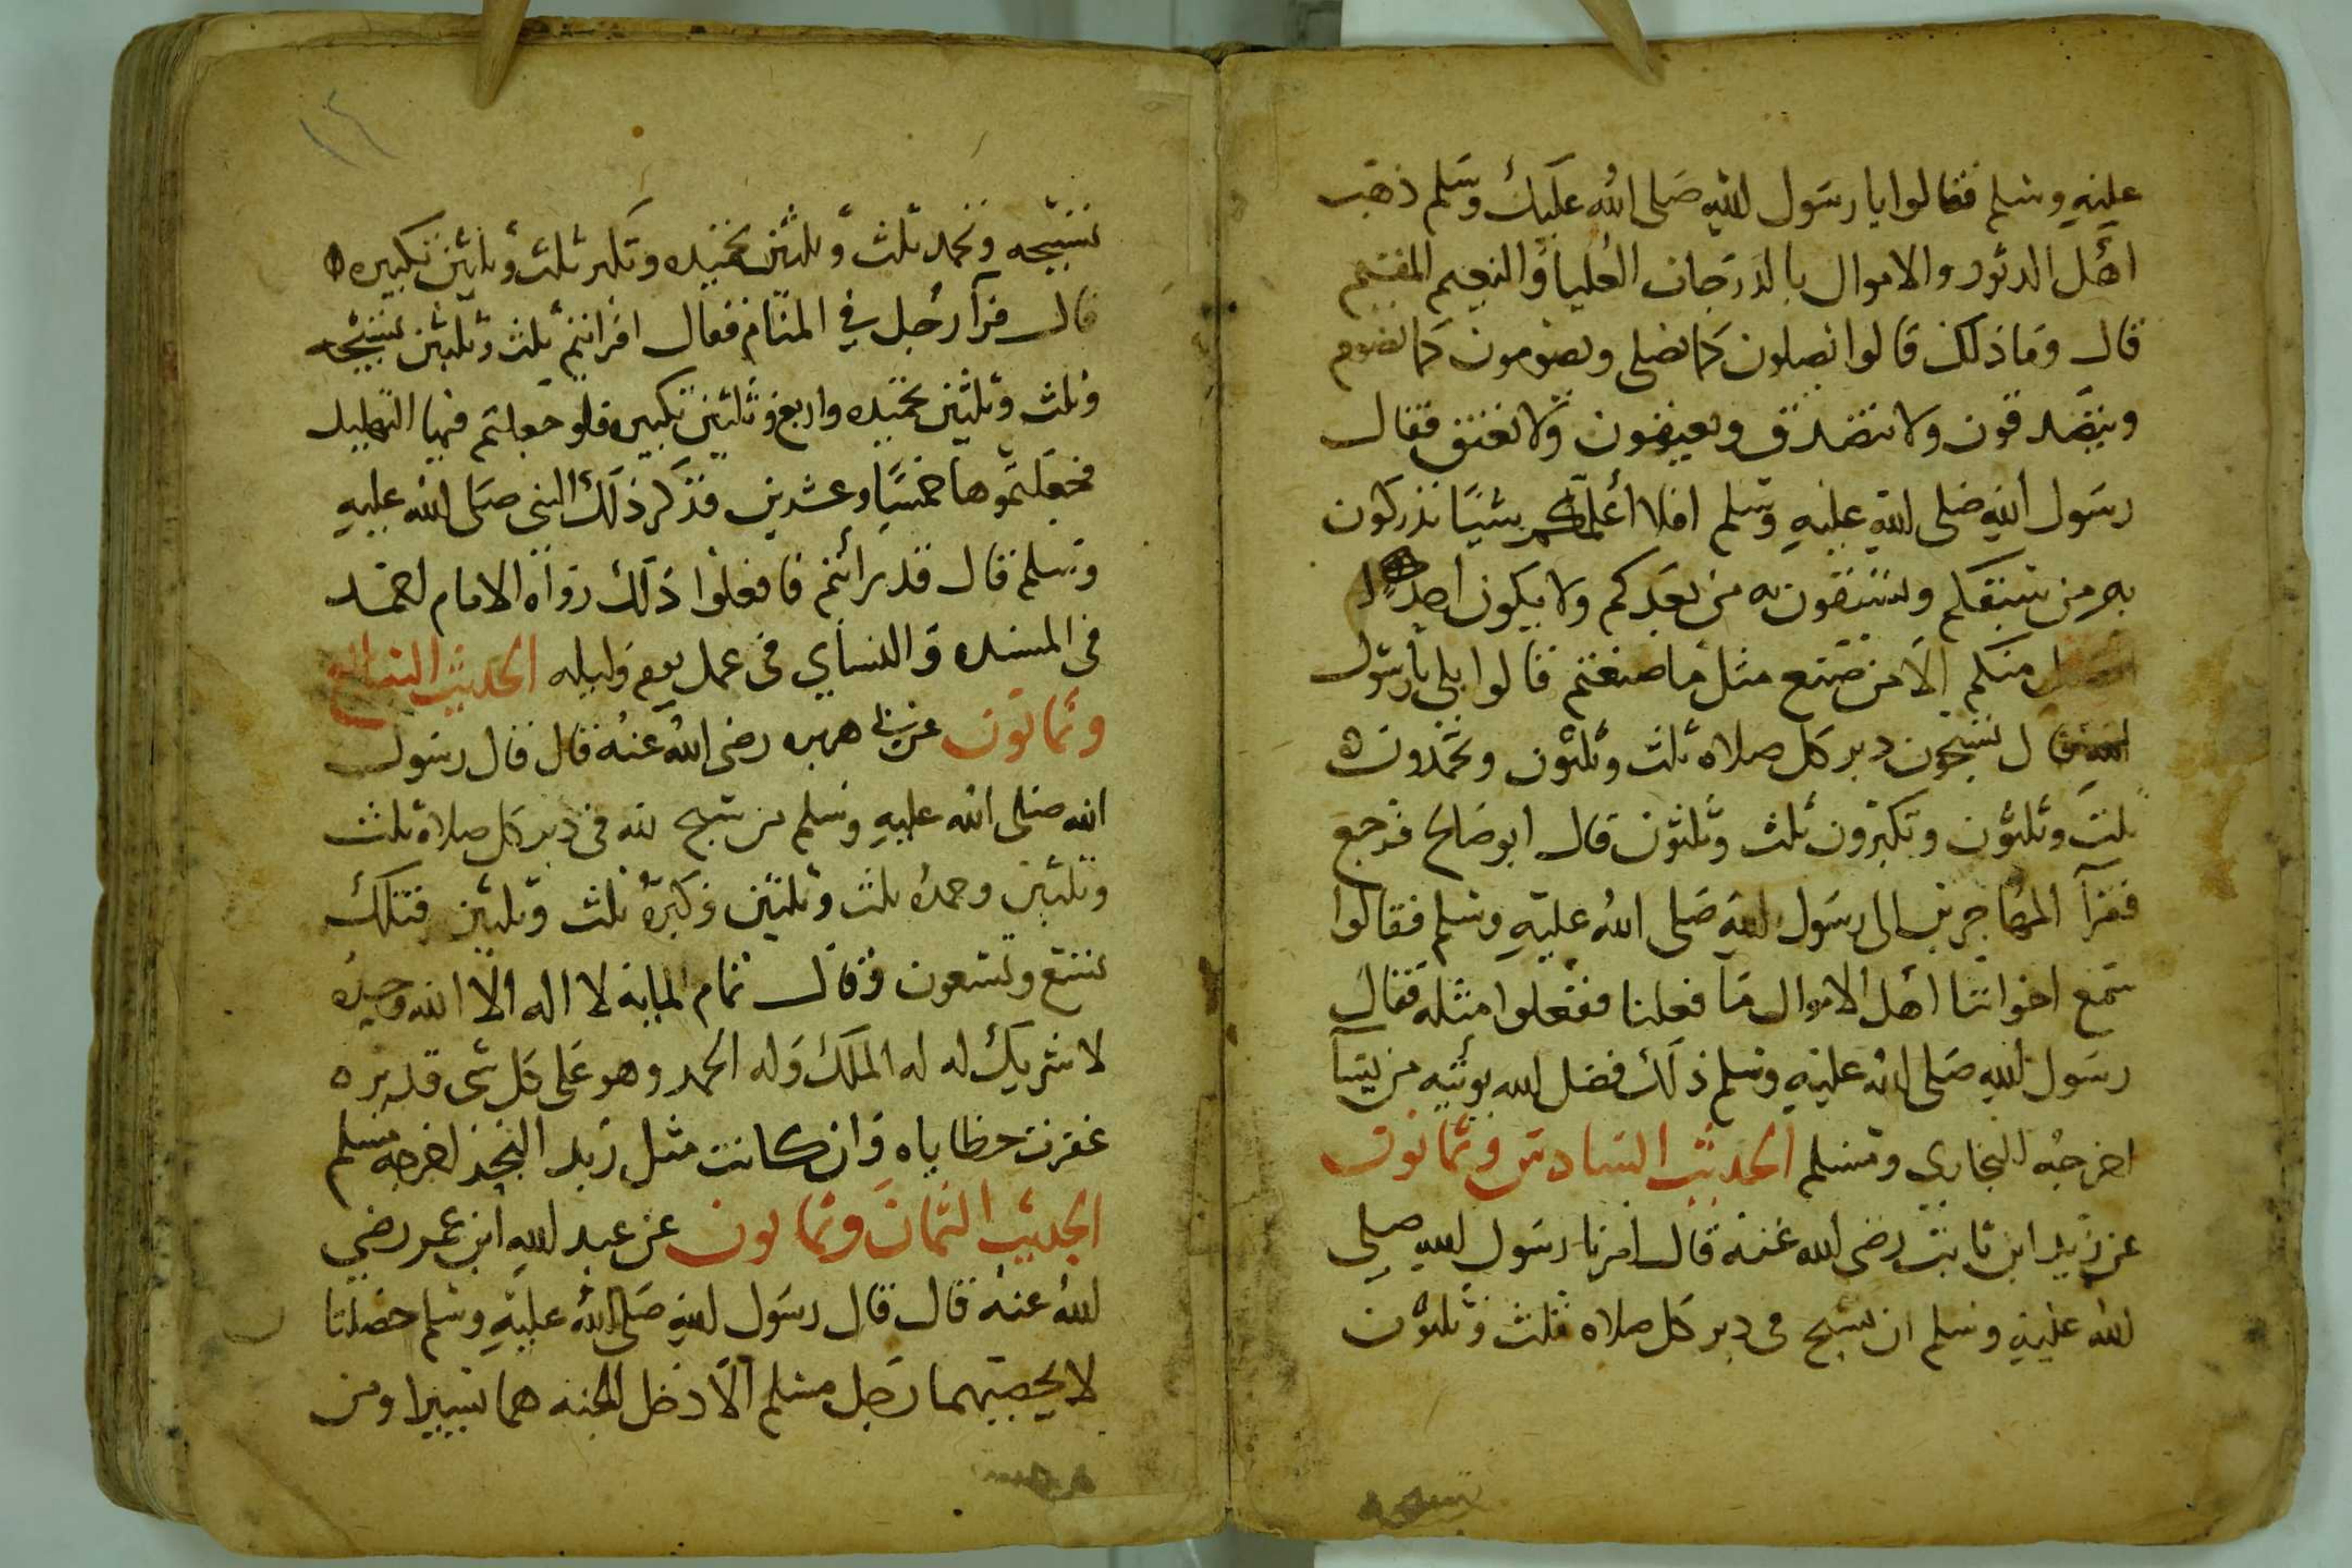 عليه وسلم فقالوا يا رسول الله صلى الله عليك وسلم ذهب
اهل الدثور والاموال بالدرجات العليا والنعيم المقيم
قال وما ذلك قالوا يصلون كما نصلي ويصومون كما نصوم
ويتصدقون ولا نتصدق ويعتقون ولا نعتق فقال
رسول الله صلى الله عليه وسلم افلا اعلمكم شيئا تدركون
به من سبقكم وتسبقون به من بعدكم ولا يكون احد
افضل منكم الا من صنع مثل ما صنعتم قالوا بلى يا رسول
الله قال تسبحون دبر كل صلاه ثلث وثلثون وتحمدون
ثلث وثلثون وتكبرون ثلث وثلثون قال ابو صالح فرجع
فقرآ المهاجرين الى رسول الله صلى الله عليه وسلم فقالوا
سمع اخواننا اهل الاموال ما فعلنا ففعلوا مثله فقال
رسول الله صلى الله عليه وسلم ذلك فضل الله يوتيه من يشآ
اخرجه البخاري ومسلم الحديث السادس وثمانون
عن زيد ابن ثابت رضي الله عنه قال امرنا رسول الله صلى
الله عليه وسلم ان نسبح في دبر كل صلاه ثلث وثلثون
١٤
تسبيحه ونحمد ثلث وثلثين تحميده ونكبر ثلث وثلثين تكبيره
قال فرآ رجل في المنام فقال امرانتم ثلث وثلثين تسبيحه
وثلث وثلثين تحميده واربع وثلثين تكبيره فلو جعلتم فيها التهليل
فجعلتموها خمسا وعشرين فذكر ذلك النبي صلى الله عليه
وسلم قال قد رائتم فافعلوا ذلك رواه الامام احمد
في المسنده والنسأي في عمل يوم وليله الحديث السابع
وثمانون عن ابي هريره رضي الله عنه قال قال رسول
الله صلى الله عليه وسلم من سبح لله في دبر كل صلاه ثلث
وثلثين وحمده ثلث وثلثين وكبره ثلث وثلثين فتلك
تسع وتسعون وقال تمام المايه لا اله الا الله وحده
لا شريك له له الملك وله الحمد وهو على كل شي قدير
غفرت خطاياه وان كانت مثل زبد البحر اخرجه مسلم
الحديث الثمان وثمانون عن عبد الله ابن عمر رضي
الله عنه قال قال رسول الله صلى الله عليه وسلم خصلتا
لا يحصيهما رجل مسلم الا دخل الجنه هما يسيرا ومن